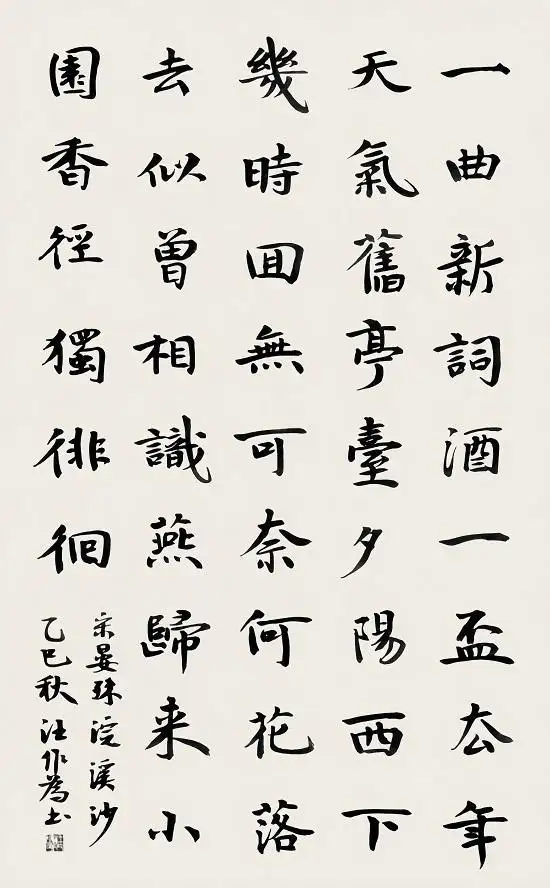 一曲新詞酒一盃去年
天氣舊亭臺夕陽西下
幾時回無可奈何花落
去似曾相識燕歸来小
園香徑獨徘徊
宋晏殊浣溪沙
乙巳秋汪作為書